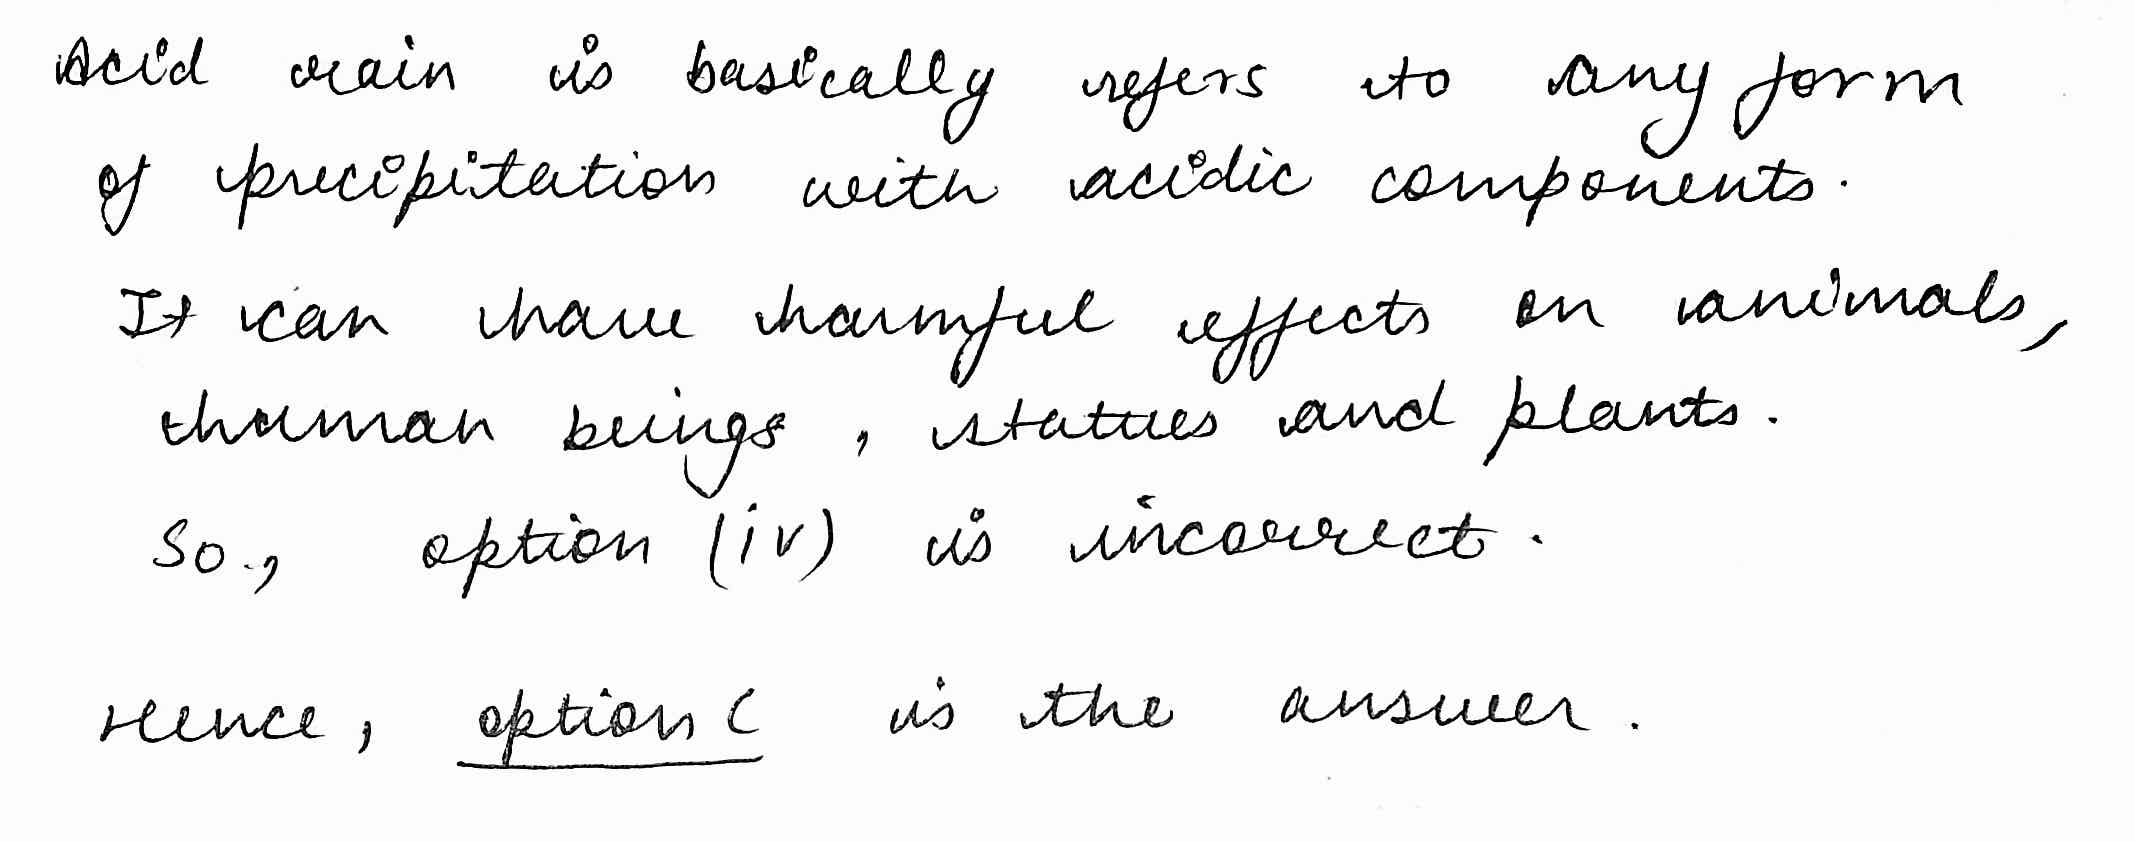 Acid rain is basically refers to any form
of precipitation with acidic components.
It can have harmful effects on animals,
human beings, statues and plants.
So., option (iv) is incorrect.
Hence, option C is the answer.